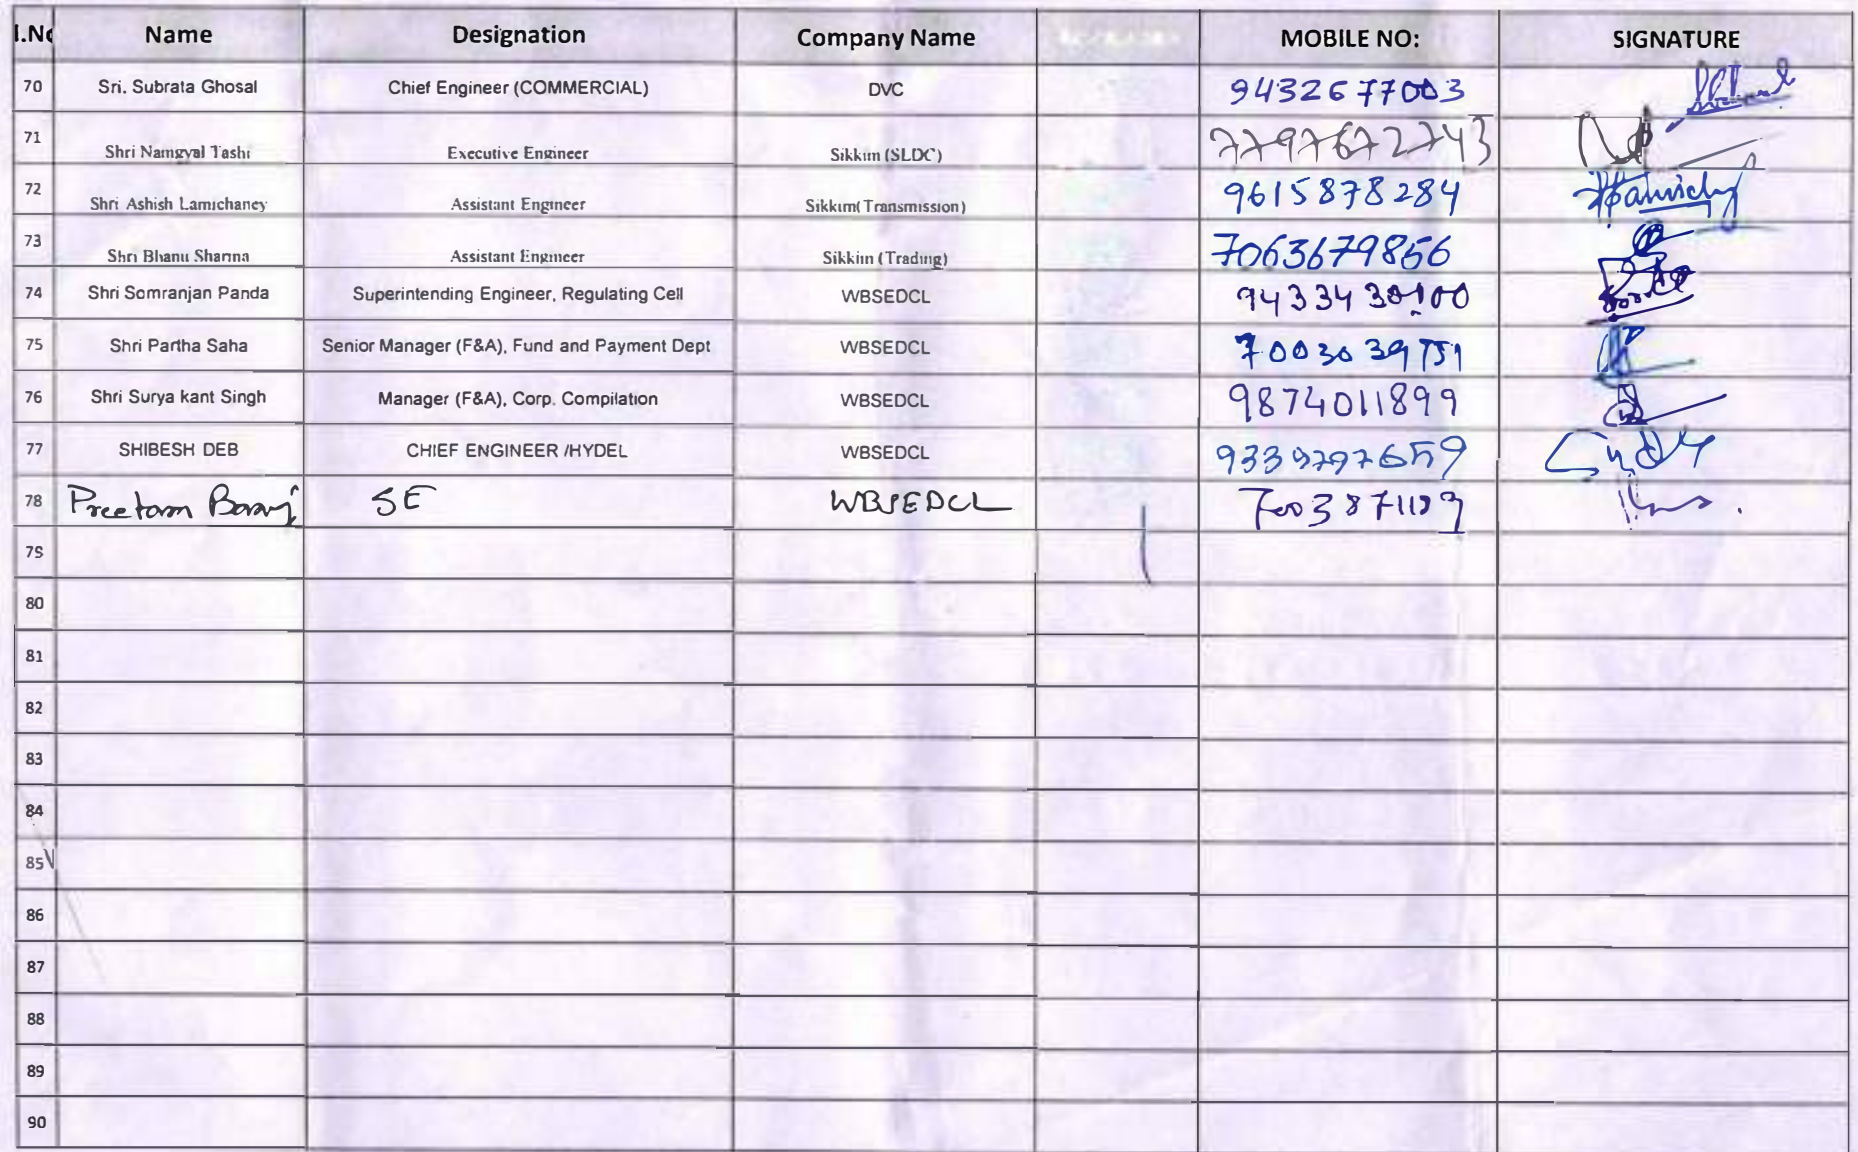 l.No Name Designation Company Name MOBILE NO: SIGNATURE
70 Sri. Subrata Ghosal Chief Engineer (COMMERCIAL) DVC 9432677003
71 Shri Namgyal Tashi Executive Engineer Sikkim (SLDC) 7797672743
72 Shri Ashish Lamichaney Assistant Engineer Sikkim(Transmission) 9615878284
73 Shri Bhanu Sharma Assistant Engineer Sikkim (Trading) 7063679856
74 Shri Somranjan Panda Superintending Engineer, Regulating Cell WBSEDCL
75 Shri Partha Saha Senior Manager (F&A), Fund and Payment Dept WBSEDCL 7003039751
76 Shri Surya kant Singh Manager (F&A), Corp. Compilation WBSEDCL 9874011899
77 SHIBESH DEB CHIEF ENGINEER /HYDEL WBSEDCL
78 Preetam SE WBSEDCL
79
80
81
82
83
84
85
86
87
88
89
90